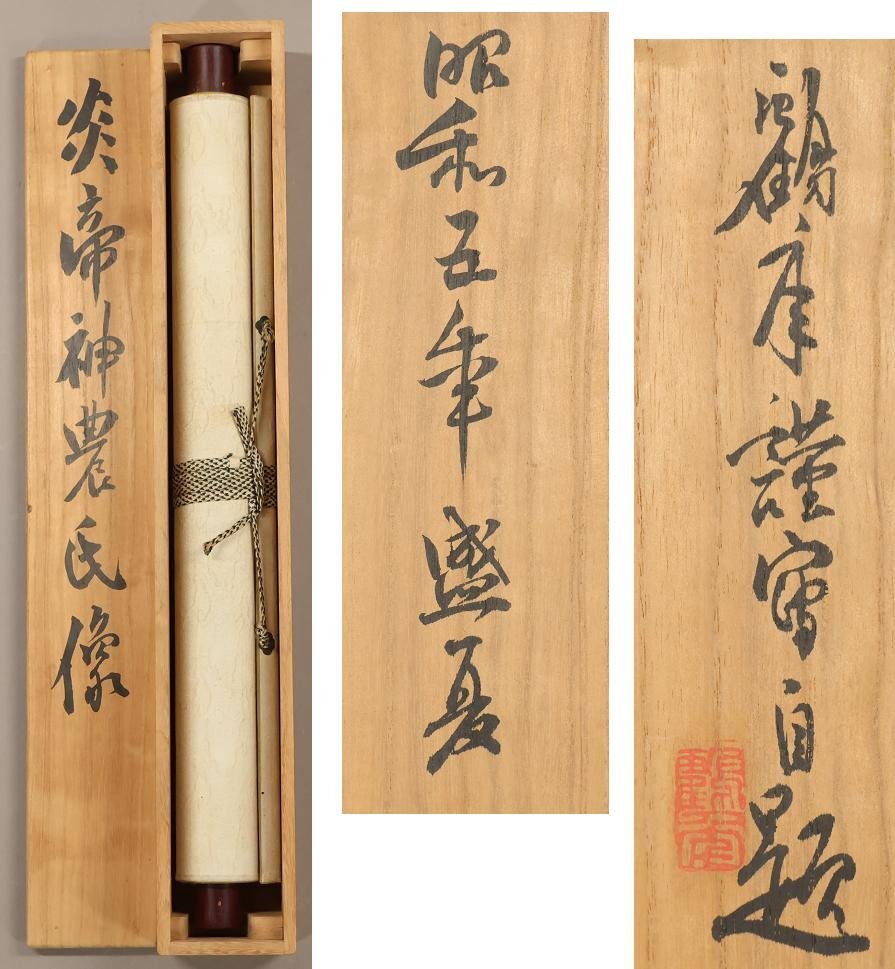 炎帝神農氏像
昭和五年盛夏
謹寫自題